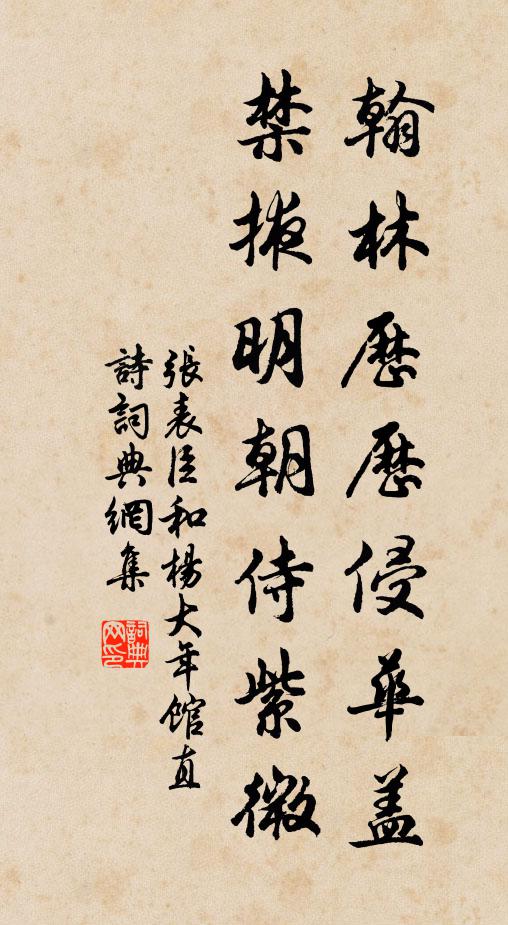 翰林歷歷侵華蓋
禁掖明朝侍紫微
張表臣和楊大年館直
詩詞典網集
詞典網印